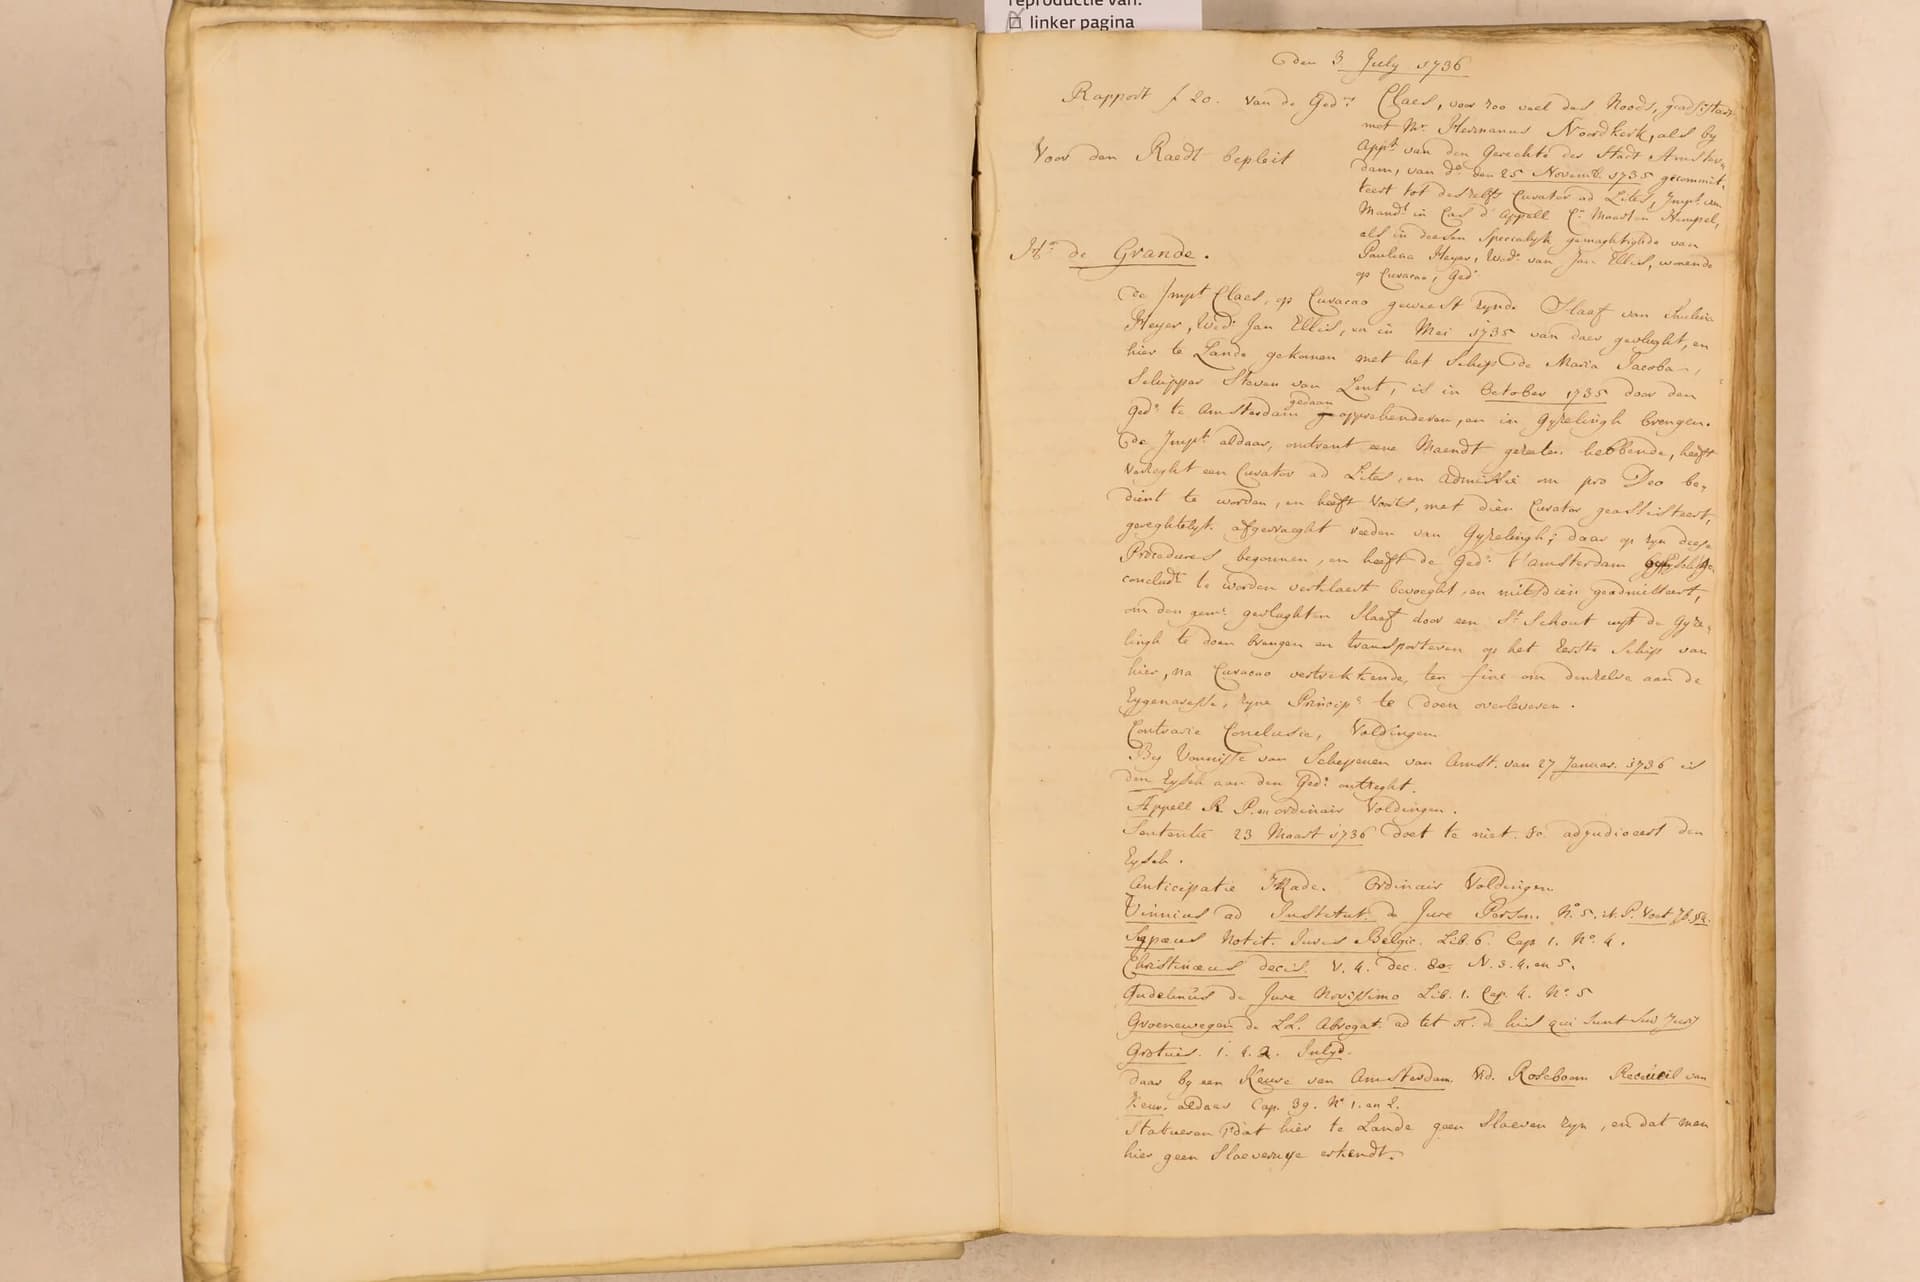 reproductie van:
☐ linker pagina
den 3 July 1736
Rapport f 20. van de Ged.e
Voor den Raedt bepleit
Hr. de Grande.
Claes, voor zoo veel des Noods, geadsisteert
met Mr. Hermanus Noordkerk, als by
Appt. van den Gerechte der Stadt Amster-
dam, van do. den 25 Novemb. 1735 gecommit-
teert tot deszelfs Curator ad Lites, Impt. van
Mandt. in Cas d'Appell Ca. Maarten Hempel,
als in deesen Specialyk gemachtighde van
Paulina Heyer, Wede. van Jan Ellis, wonende
op Curacao, Ged.
De Impt. Claes, op Curacao geweest zynde Slaaf van Paulina
Heyer, Wede. Jan Ellis, en in Mei 1735 van daer gevlught, en
hier te Lande gekomen met het Schip de Maria Jacoba,
Schipper Steven van Lent, is in October 1735 door den
Ged. te Amsterdam gedaan apprehenderen, en in Gyzelingh brengen.
De Impt. aldaar, omtrent eene Maendt gezeten hebbende, heeft
verzoght een Curator ad Lites, en admissie om pro Deo be-
dient te worden, en heeft voorts, met dien Curator geassisteert,
gereghtelyk afgevraeght reeden van Gyzelingh; daar op zyn deese
Procedures begonnen, en heeft de Ged. t'Amsterdam
concludt. te worden verklaert bevoeght, en mitsdien geadmitteert,
om den gem. gevlughten Slaaf door een St. Schout uyt de Gyze-
lingh te doen brengen en transporteren op het Eerste Schip van
hier, na Curacao vertrekkende, ten fine om denzelve aan de
Eygenaresse, zyne Princip. te doen overleveren.
Contrarie Conclusie, Voldingen
By Vonnisse van Schepenen van Amst. van 27 Januar. 1736 is
den Eysch aan den Ged. ontzeght.
Appell R. P. en ordinair Voldingen.
Sententie 23 Maart 1736 doet te niet. &c. adjudiceert den
Eysch.
Anticipatie H Rade. Ordinair Voldingen
Vinnius ad Institut. de Jure Person. No. 5. it. P. Voet
Zypaeus Notit. Juris Belgic. Lib. 6. Cap. 1. No. 4.
Christinaeus decis. V. 4. dec. 80. N. 3. 4. en 5.
Gudelinus de Jure Novissimo Lib. 1. Cap. 4. No. 5
Groenewegen de LL. Abrogat. ad tit π. de his qui sunt sui Juris
Grotius. 1. 4. 2. Inleyd.
daar by een Keure van Amsterdam. Vid. Roseboom Recueil van
Keur. aldaar Cap. 39. No. 1. en 2.
Statueren dat hier te Lande geen Slaeven zyn, en dat men
hier geen Slaevernye erkendt.